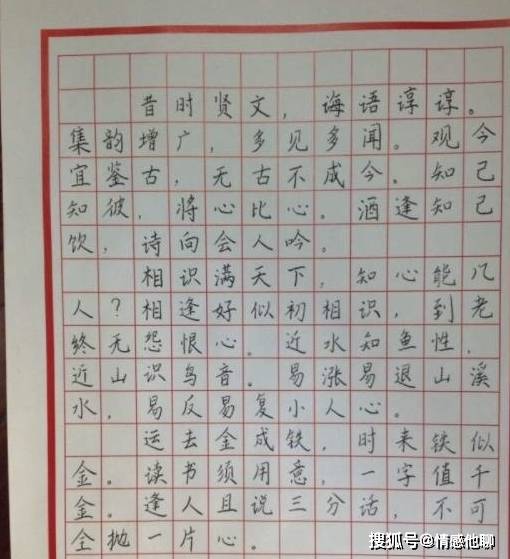 昔时贤文，诲语谆谆。
集韵增广，多见多闻。观今
宜鉴古，无古不成今。知己
知彼，将心比心。酒逢知己
饮，诗向会人吟。
相识满天下，知心能几
人？相逢好似初相识，到老
终无怨恨心。近水知鱼性，
近山识鸟音。易涨易退山溪
水，易反易复小人心。
运去金成铁，时来铁似
金。读书须用意，一字值千
金。逢人且说三分话，不可
全抛一片心。
搜狐号@情感他聊